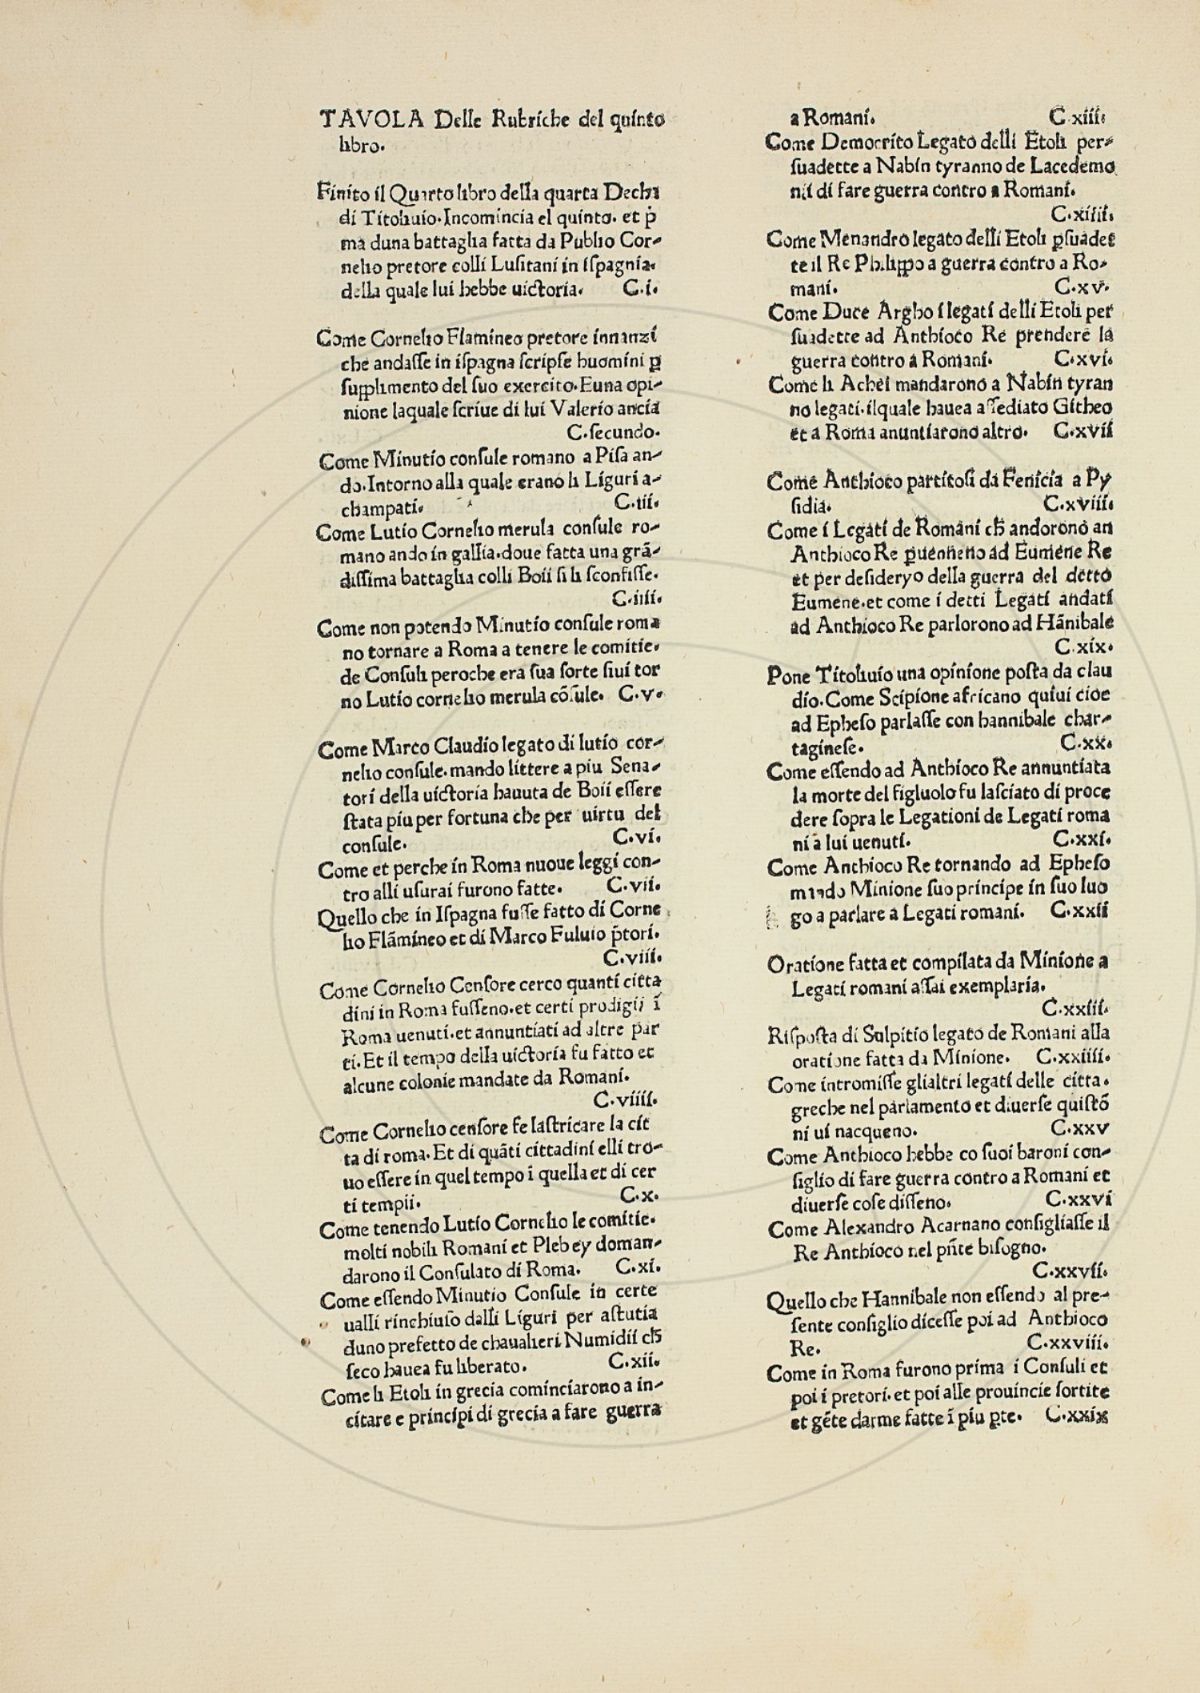 TAVOLA Delle Rubriche del quinto
libro.
Finito il Quarto libro della quarta Decha
di Titoliuio. Incomincia el quinto. et p̃
ma duna battaglia fatta da Publio Cor-
nelio pretore colli Lusitani in ispagnia.
della quale lui hebbe uictoria. C.i.
Come Cornelio Flamineo pretore innanzi
che andasse in ispagna scripse huomini ꝑ
supplimento del suo exercito. Euna opi-
nione laquale scriue di lui Valerio ancia
C.secundo.
Come Minutio consule romano a Pisa an-
do. Intorno alla quale erano li Liguri a-
champati. C.iii.
Come Lutio Cornelio merula consule ro-
mano ando in gallia. doue fatta una grã-
dissima battaglia colli Boii si li sconfisse.
C.iiii.
Come non potendo Minutio consule roma
no tornare a Roma a tenere le comitie.
de Consuli peroche era sua sorte siui tor
no Lutio cornelio merula cõsule. C.v.
Come Marco Claudio legato di lutio cor-
nelio consule. mando littere a piu Sena-
tori della uictoria hauuta de Boii essere
stata piu per fortuna che per uirtu del
consule. C.vi.
Come et perche in Roma nuoue leggi con-
tro alli usurai furono fatte. C.vii.
Quello che in Ispagna fusse fatto di Corne
lio Flãmineo et di Marco Fuluio p̃tori.
C.viii.
Come Cornelio Censore cerco quanti citta
dini in Roma fusseno. et certi prodigii ĩ
Roma uenuti. et annuntiati ad altre par
ti. Et il tempo della uictoria fu fatto et
alcune colonie mandate da Romani.
C.viiii.
Come Cornelio censore fe lastricare la cit
ta di roma. Et di quãti cittadini elli tro-
uo essere in quel tempo i quella et di cer
ti tempii. C.x.
Come tenendo Lutio Cornelio le comitie.
molti nobili Romani et Plebey doman-
darono il Consulato di Roma. C.xi.
Come essendo Minutio Consule in certe
ualli rinchiuso dalli Liguri per astutia
duno prefetto de chaualieri Numidii ch̃
seco hauea fu liberato. C.xii.
Come li Etoli in grecia cominciarono a in-
citare e principi di grecia a fare guerra
a Romani. C.xiii.
Come Democrito Legato delli Etoli per-
suadette a Nabin tyranno de Lacedemo
nii di fare guerra contro a Romani.
C.xiiii.
Come Menandro legato delli Etoli ꝑsuadet
te il Re Philippo a guerra contro a Ro-
mani. C.xv.
Come Duce Argho i legati delli Etoli per
suadette ad Anthioco Re prendere la
guerra contro a Romani. C.xvi.
Come li Achei mandarono a Nabin tyran
no legati. ilquale hauea assediato Githeo
et a Roma anuntiarono altro. C.xvii
Come Anthioco partitosi da Fenicia a Py
sidia. C.xviii.
Come i Legati de Romani ch̃ andorono an
Anthioco Re ꝑuenneno ad Eumene Re
et per desideryo della guerra del detto
Eumene. et come i detti Legati andati
ad Anthioco Re parlorono ad Hãnibale
C.xix.
Pone Titoliuio una opinione posta da clau
dio. Come Scipione africano quiui cioe
ad Epheso parlasse con hannibale char-
taginese. C.xx.
Come essendo ad Anthioco Re annuntiata
la morte del figluolo fu lasciato di proce
dere sopra le Legationi de Legati roma
ni a lui uenuti. C.xxi.
Come Anthioco Re tornando ad Epheso
mando Minione suo principe in suo luo
go a parlare a Legati romani. C.xxii
Oratione fatta et compilata da Minione a
Legati romani assai exemplaria.
C.xxiii.
Risposta di Sulpitio legato de Romani alla
oratione fatta da Minione. C.xxiiii.
Come intromisse glialtri legati delle citta.
greche nel parlamento et diuerse quistõ
ni ui nacqueno. C.xxv
Come Anthioco hebbe co suoi baroni con-
siglio di fare guerra contro a Romani et
diuerse cose disseno. C.xxvi
Come Alexandro Acarnano consigliasse il
Re Anthioco nel pñte bisogno.
C.xxvii.
Quello che Hannibale non essendo al pre-
sente consiglio dicesse poi ad Anthioco
Re. C.xxviii.
Come in Roma furono prima i Consuli et
poi i pretori. et poi alle prouincie sortite
et gẽte darme fatte ĩ piu ꝑte. C.xxix